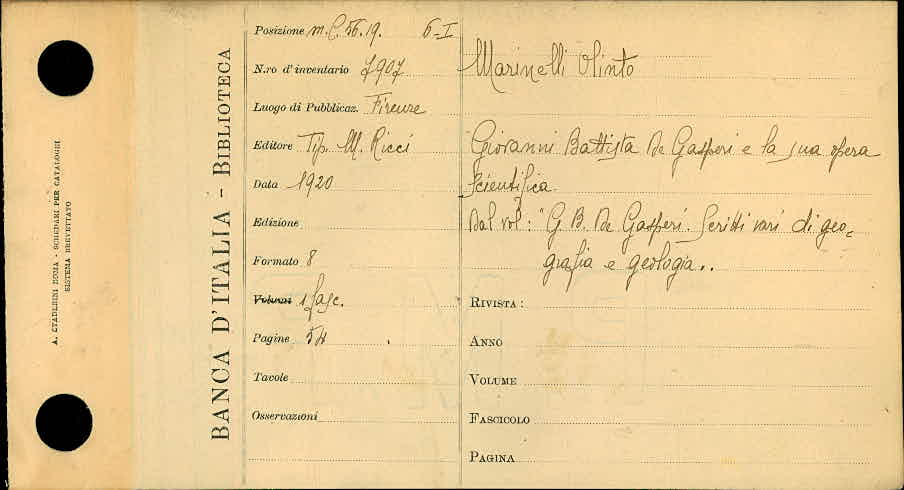 A. STADERINI ROMA - SCHEDARI PER CATALOGHI
SISTEMA BREVETTATO
BANCA D'ITALIA - BIBLIOTECA
Posizione m.C.56.19. 6-I
N.ro d'inventario 7907
Luogo di Pubblicaz. Firenze
Editore Tip. M. Ricci
Data 1920
Edizione
Formato 8
Volumi 1 fasc.
Pagine 54
Tavole
Osservazioni
Marinelli Olinto
Giovanni Battista De Gasperi e la sua opera
scientifica.
Dal vol: "G. B. De Gasperi. Scritti vari di geo=
grafia e geologia„.
RIVISTA:
ANNO
VOLUME
FASCICOLO
PAGINA